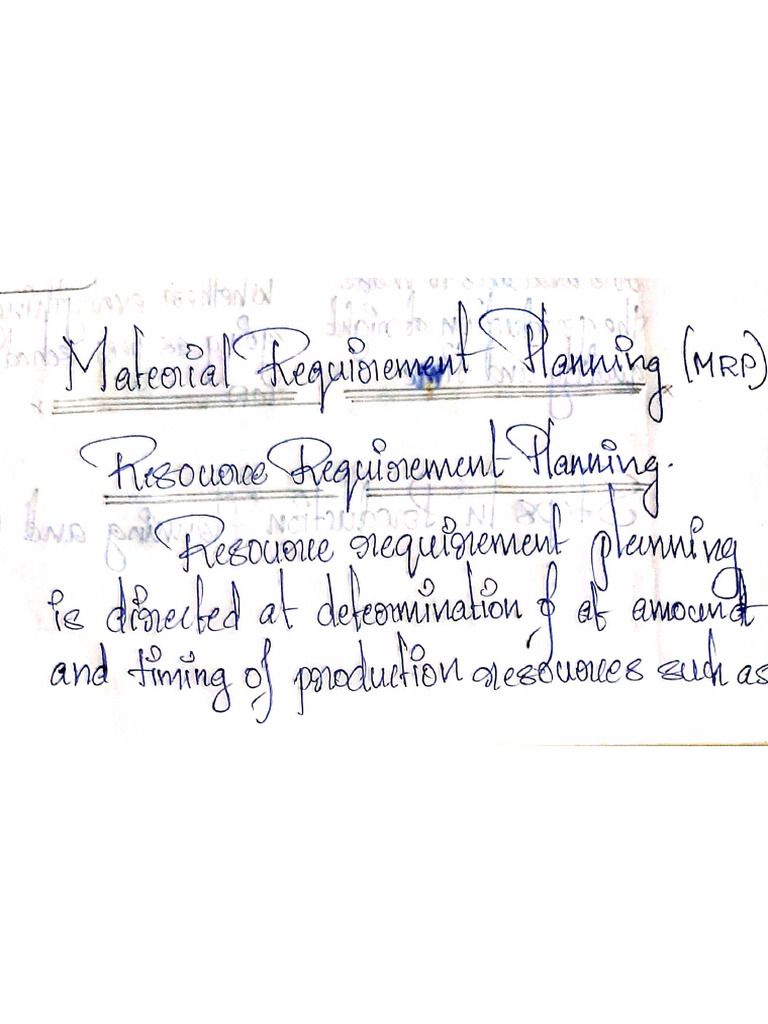 Material Requirement Planning (MRP)
Resource Requirement Planning.
Resource requirement planning
is directed at determination of at amount
and timing of production resources such as